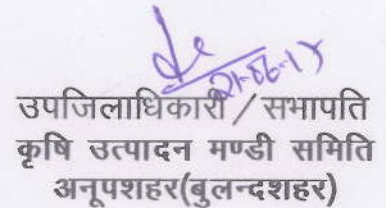 उपजिलाधिकारी / सभापति
कृषि उत्पादन मण्डी समिति
अनूपशहर(बुलन्दशहर)